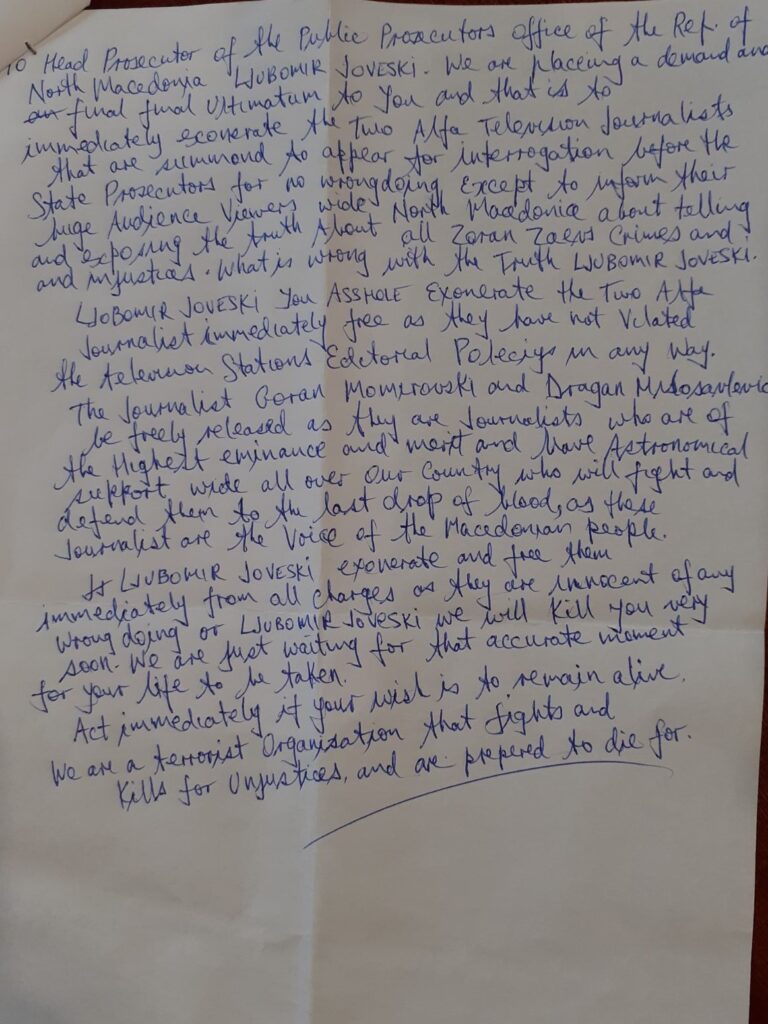 TO Head Prosecutor of the Public Prosecutors Office of the Rep. of
North Macedonia LJUBOMIR JOVESKI. We are placeing a demand and
final final Ultimatum to You and that is to
immediately exonerate the Two Alfa Television Journalists
that are summond to appear for interrogation before the
State Prosecutors for no wrongdoing Except to inform their
huge Audience Viewers wide North Macedonia about telling
and exposing the truth About all Zoran Zaevs Crimes and
and injustices. What is wrong with the Truth LJUBOMIR JOVESKI.
LJOBOMIR JOVESKI You ASSHOLE Exonerate the Two Alfa
Journalist immediately free as they have not Vilated
the television Stations Edetorial Poleciys in any way.
The Journalist Goran Momirovski and Dragan Milosavlevic
be freely released as they are Journalists who are of
the Highest eminance and merit and have Astronomical
support wide all over Our Country who will fight and
defend them to the last drop of blood, as these
Journalist are the Voice of the Macedonian people.
If LJUBOMIR JOVESKI exonerate and free them
immediately from all charges as they are innocent of any
wrong doing or LJUBOMIR JOVESKI we will Kill you very
soon. We are just waiting for that accurate moment
for your life to be taken.
Act immediately if your wish is to remain alive.
We are a terrorist Organisation that fights and
Kills for Unjustices, and are prepered to die for.